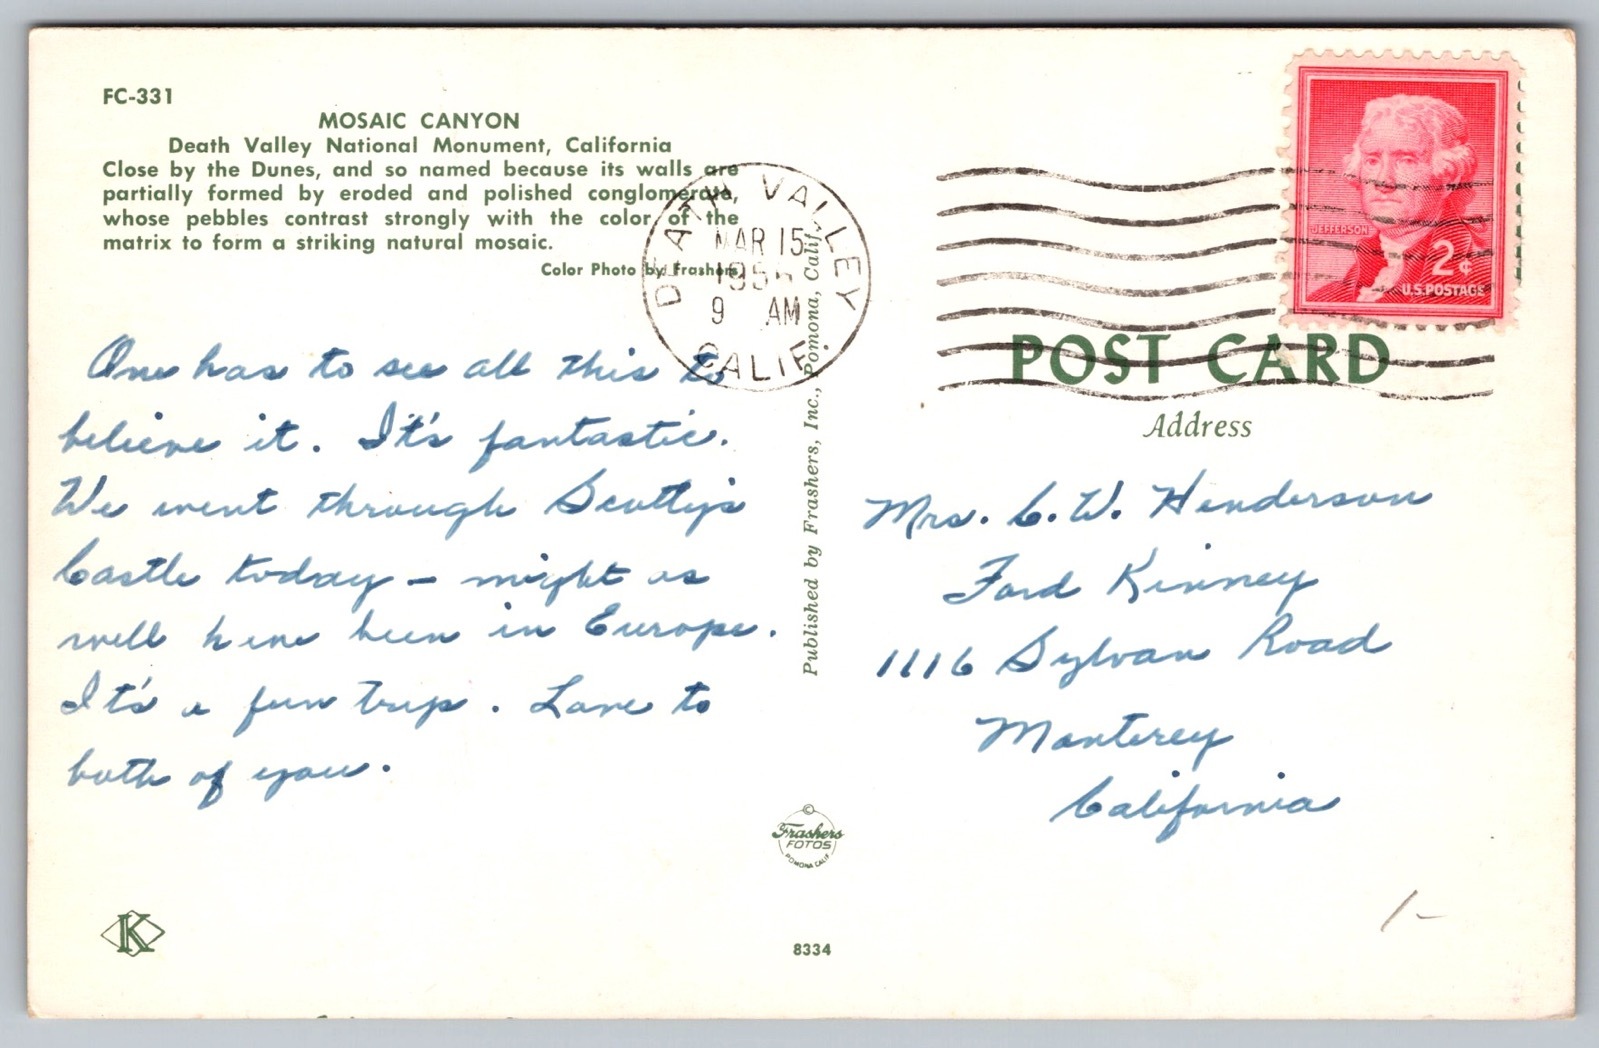 FC-331
MOSAIC CANYON
Death Valley National Monument, California
Close by the Dunes, and so named because its walls are
partially formed by eroded and polished conglomerate,
whose pebbles contrast strongly with the color of the
matrix to form a striking natural mosaic.
Color Photo by Frashers
One has to see all this to
believe it. It's fantastic.
We went through Scotty's
Castle today - might as
well have been in Europe.
It's a fun trip. Love to
both of you.
K
DEATH VALLEY
MAR 15
9 AM
CALIF.
Published by Frashers, Inc., Pomona, Calif.
©
Frashers
FOTOS
POMONA CALIF
8334
JEFFERSON
2¢
U.S. POSTAGE
POST CARD
Address
Mrs. C. W. Henderson
Ford Kinney
1116 Sylvan Road
Monterey
California
1-